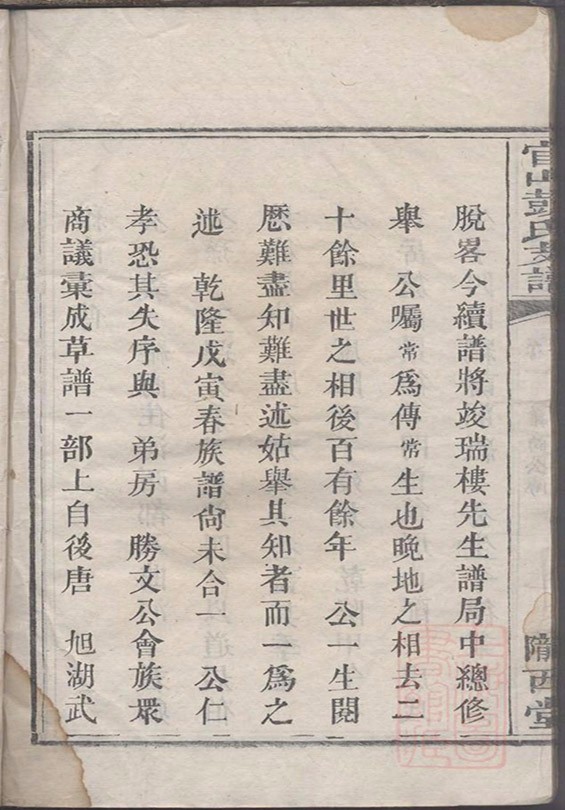 官山彭氏支譜
隴西堂
脫畧今續譜將竣瑞樓先生譜局中總修
舉　公囑常爲傳常生也晚地之相去二
十餘里世之相後百有餘年　公一生閱
歷難盡知難盡述姑舉其知者而一爲之
述　乾隆戊寅春族譜尙未合一　公仁
孝恐其失序與　弟房　勝文公會族眾
商議彙成草譜一部上自後唐　旭湖武